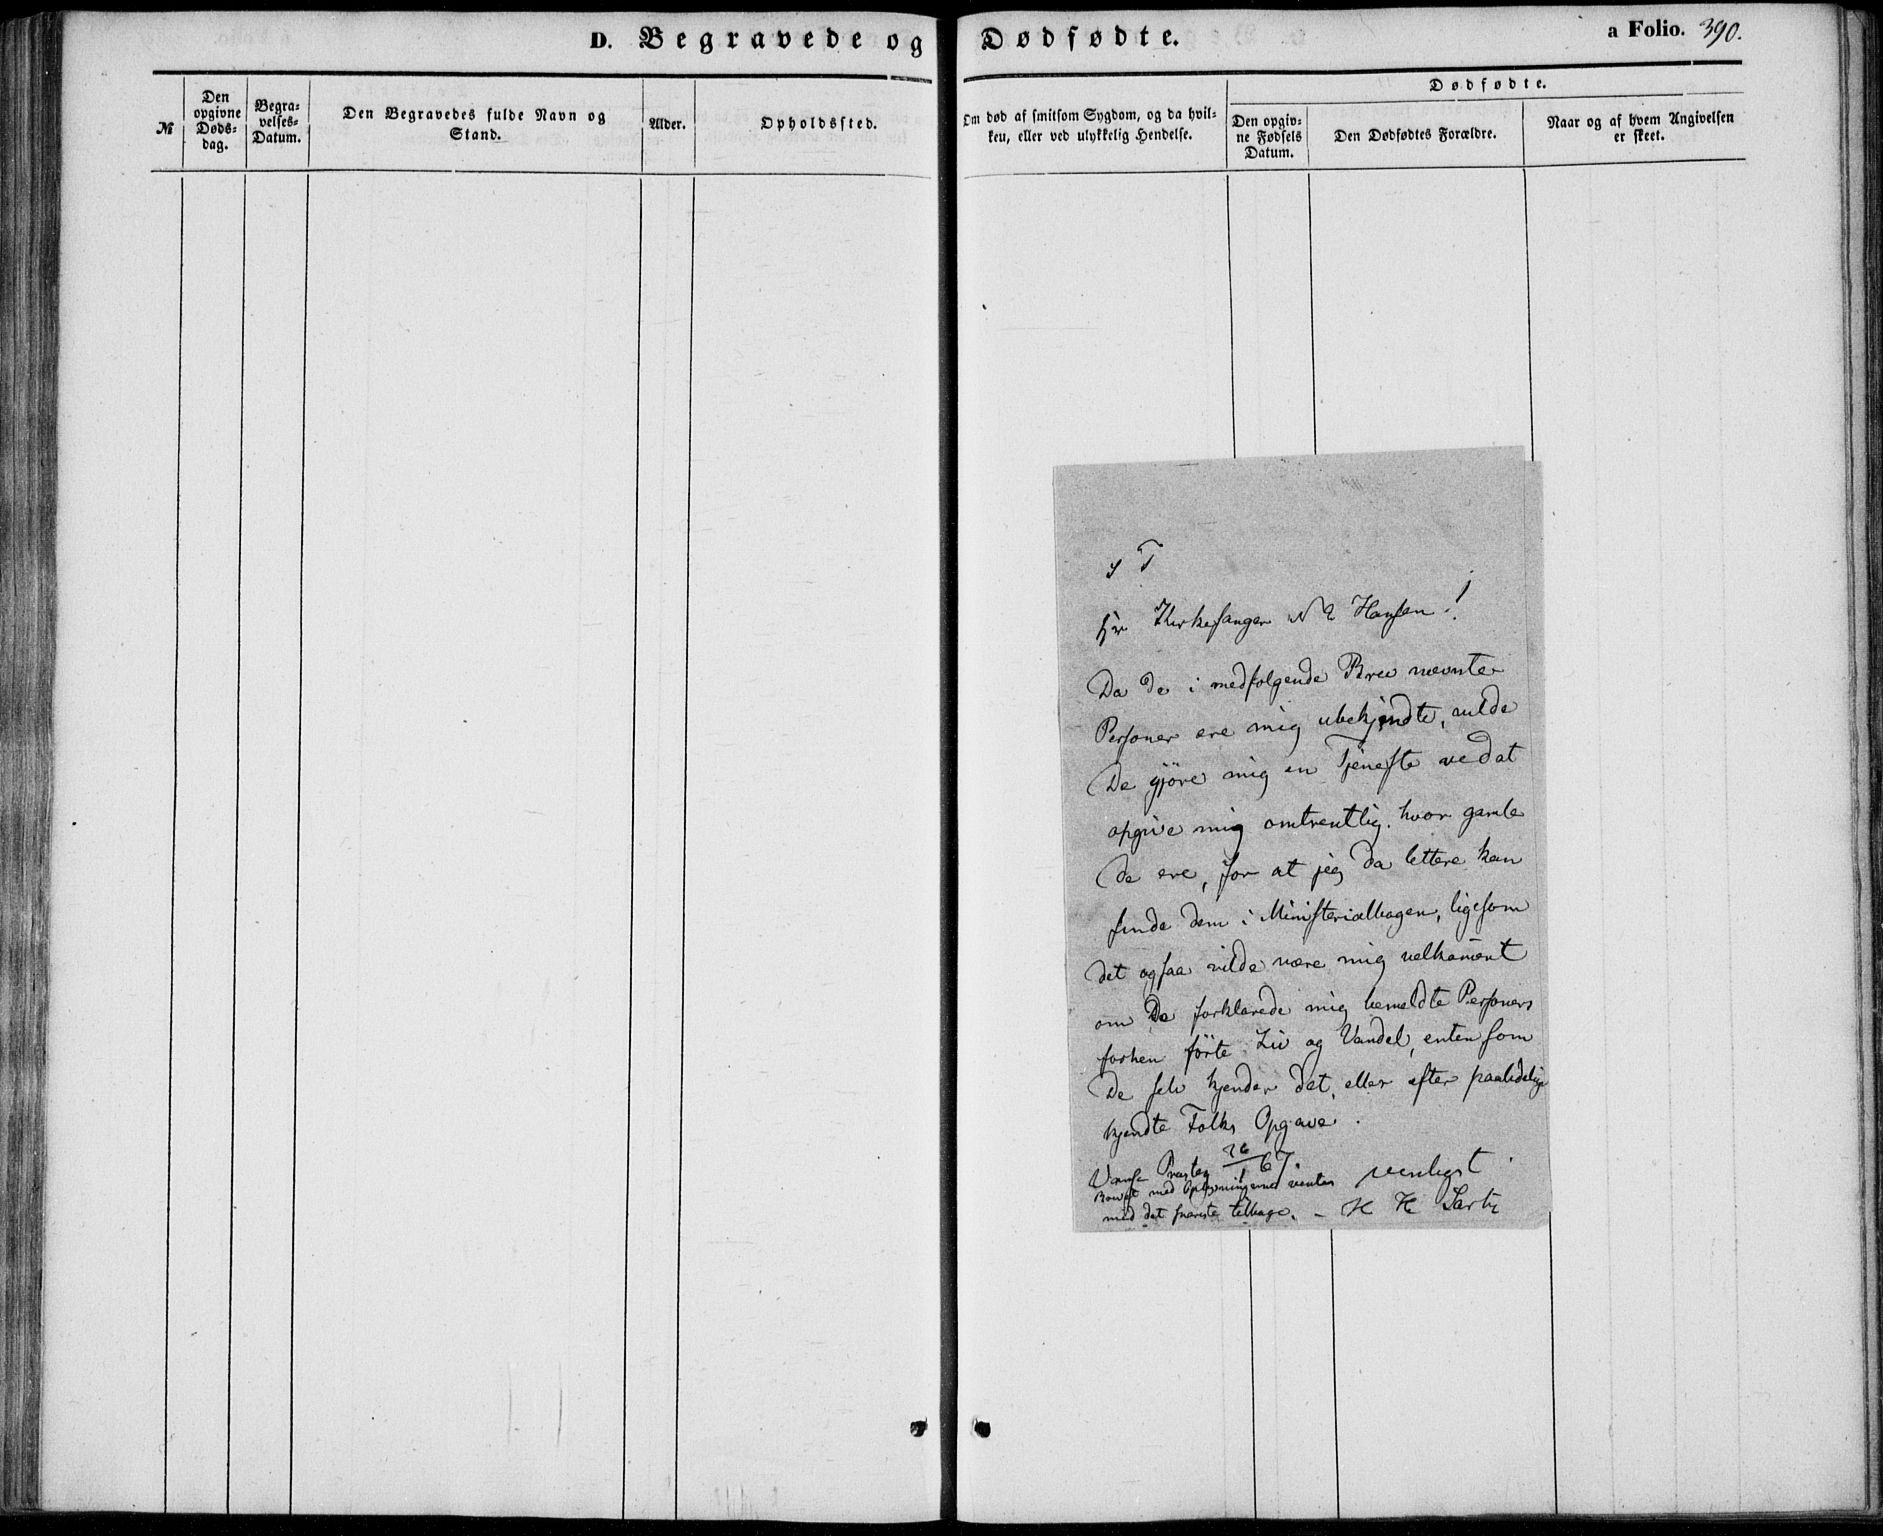 D. Begravede og Dødfødte.
a Folio. 390.
№
Den opgivne Døds-dag.
Begra-velses-Datum.
Den Begravedes fulde Navn og Stand.
Alder.
Opholdssted.
Om død af smitsom Sygdom, og da hvil-
ken, eller ved ulykkelig Hendelse.
Dødfødte.
Den opgiv-ne Fødsels Datum.
Den Dødfødtes Forældre.
Naar og af hvem Angivelsen er skeet.
S T
Hr Kirkesanger N Hansen!
Da de i medfølgende Brev nævnte
Personer ere mig ubekjendte, vilde
De gjöre mig en Tjeneste ved at
opgive mig omtrentlig hvor gamle
de ere, for at jeg da lettere kan
finde dem i Ministerialbogen, ligesom
det ogsaa vilde være mig velkoment
om De forklarede mig bemeldte Personers
forhen förte Liv og Vandel, enten som
De selv kjender det, eller efter paalidelige
kjendte Folks Opgave.
Vanse Præsteg 26/1 67 venligst
Brevet med Oplysningerne ventes
med det snareste tilbage. – H H